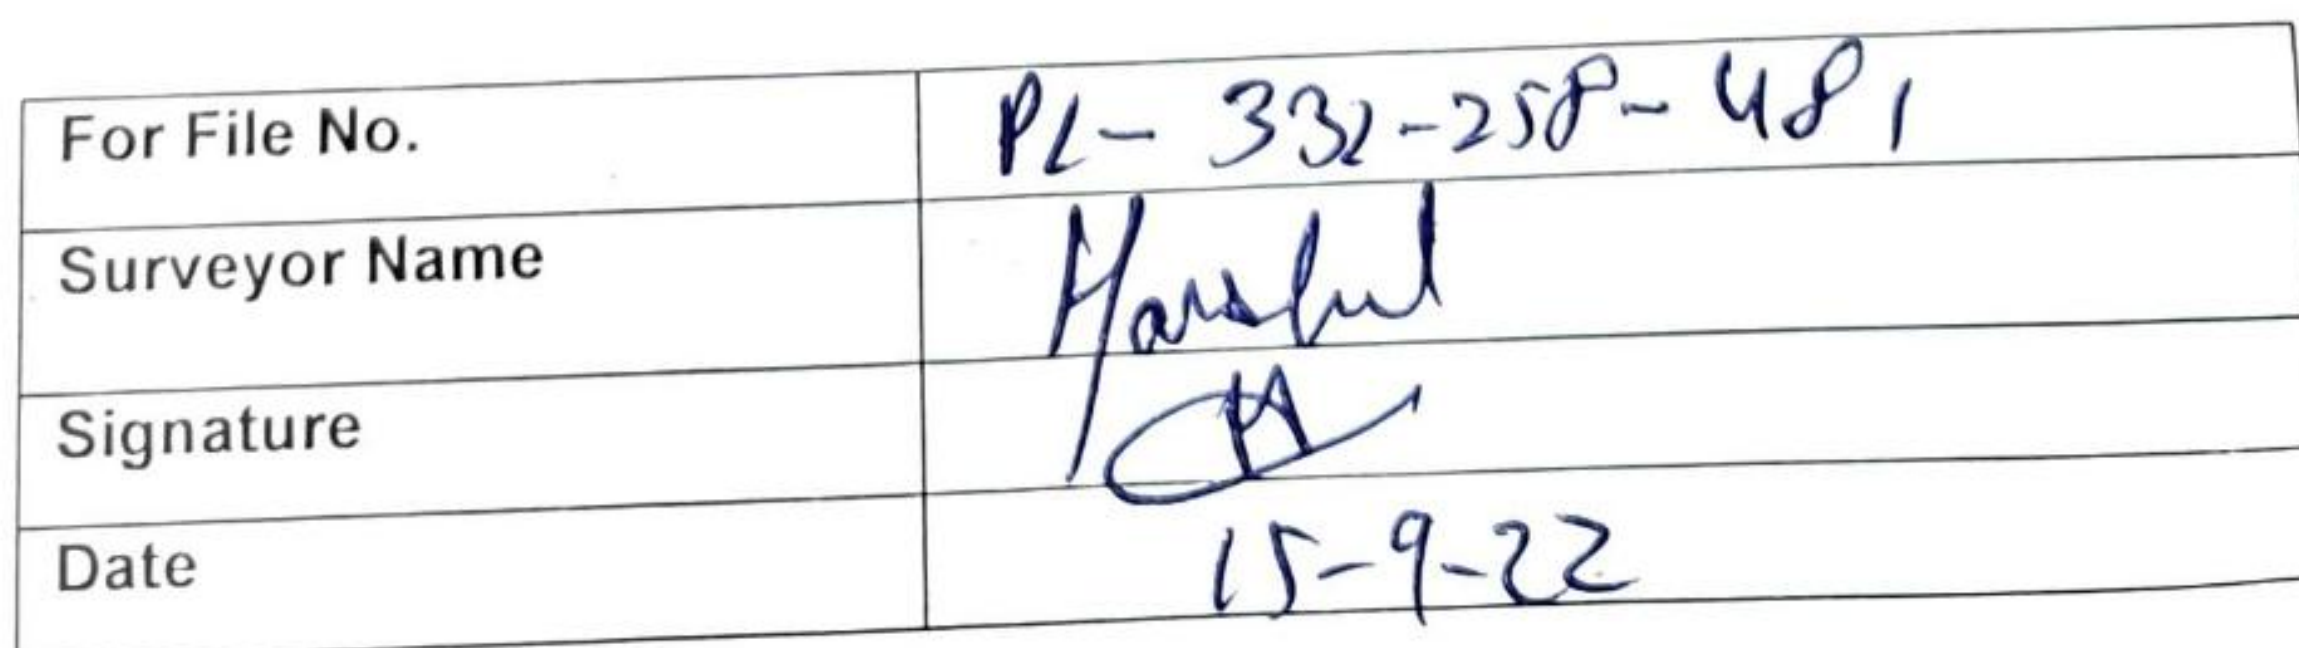 For File No. PL- 332-258-481
Surveyor Name Harshul
Signature
Date 15-9-22